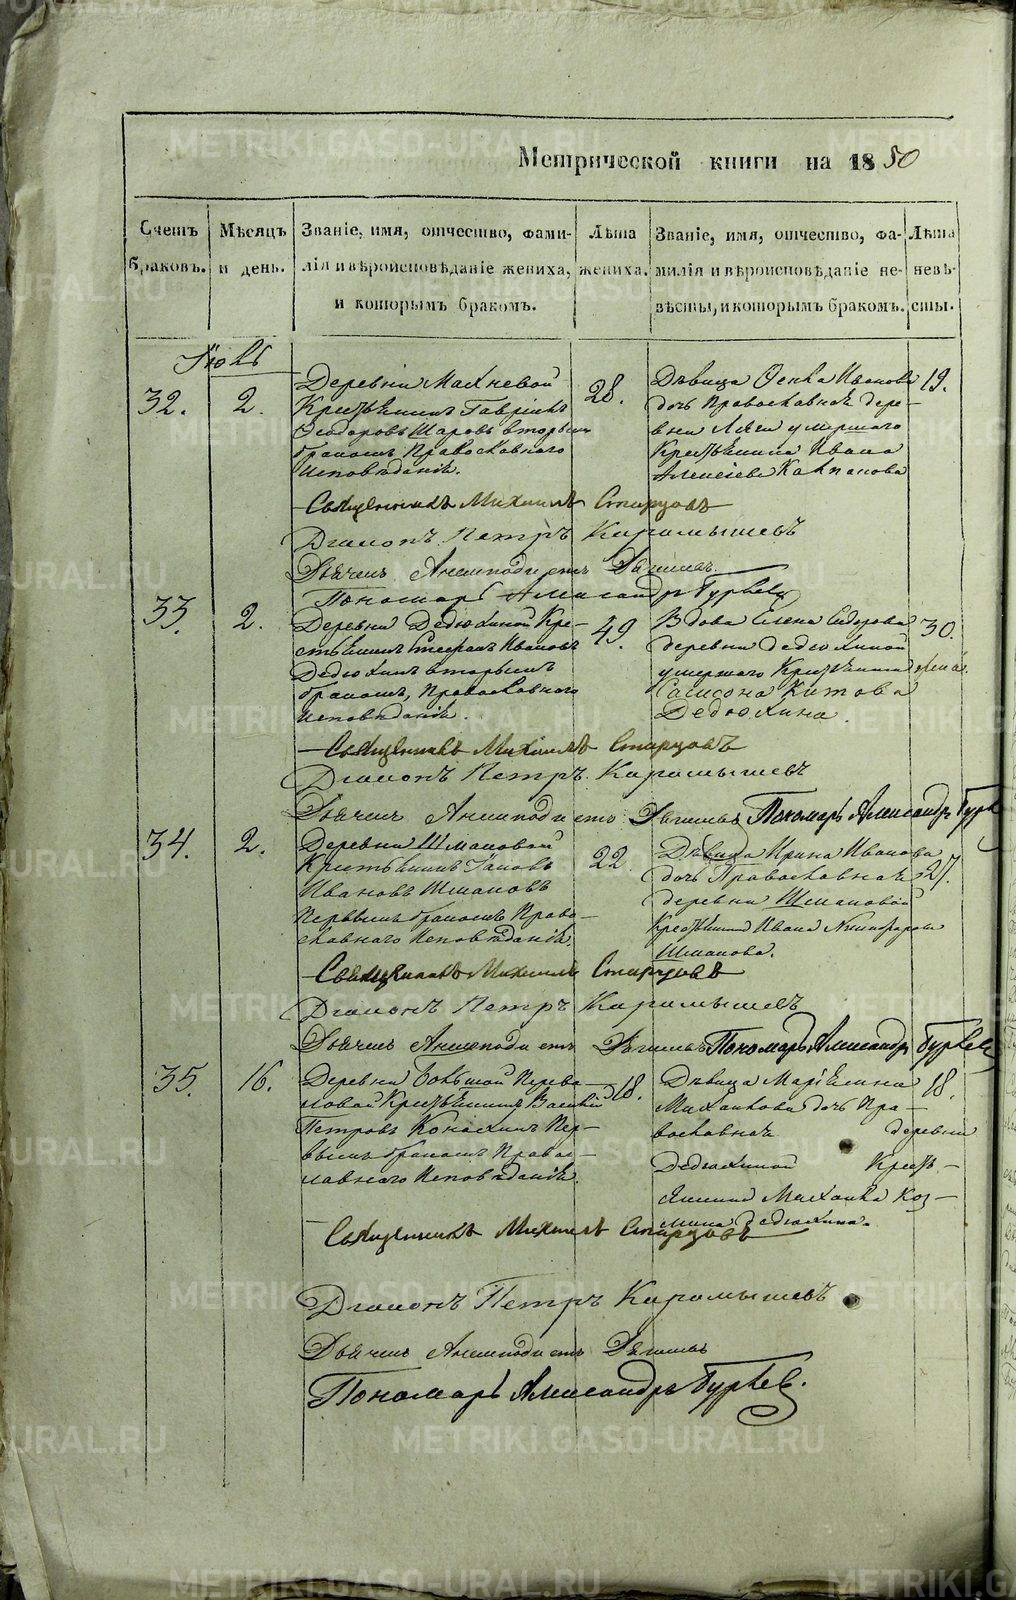 Метрической книги на 1850
Счетъ браковъ.
Мѣсяцъ и день.
Званіе, имя, отчество, фамилія и вѣроисповѣданіе жениха, и которымъ бракомъ.
Лѣта жениха.
Званіе, имя, отчество, фамилія и вѣроисповѣданіе невѣсты, и которымъ бракомъ.
Лѣта невѣсты.
32.
2.
Деревни Махневой
Гаврiилъ
Ѳеодоровъ Шаровъ вторымъ
бракомъ Православнаго
Исповѣданія.
28.
Дѣвица Ивановa
дочь Православная дере-
вни умершаго
Крестьянина Ивана
19.
Священникъ Михаилъ Старцовъ
Дiаконъ Петръ Карамышевъ
Дьячекъ
Пономарь Александръ Гурьевъ
33.
2.
Деревни Дедюхиной Кре-
стьянинъ Стефанъ Ивановъ
Дедюхинъ вторымъ
бракомъ, Православнаго
Исповѣданія.
49.
Вдова Елена Сидорова
деревни Дедюхиной
умершаго Крестьянина
Самсона Китова
Дедюхина.
30.
Священникъ Михаилъ Старцовъ
Дiаконъ Петръ Карамышевъ
Дьячекъ Пономарь Александръ
34.
2.
Деревни Шмаковой
Крестьянинъ Iаковъ
Ивановъ Шмаковъ
Первымъ бракомъ Право-
славнаго Исповѣданія
22
Дѣвица Ирина Иванова
дочь Православная
деревни Шмаковой
Крестьянина Ивана
Шмакова.
27.
Священникъ Михаилъ Старцовъ
Дiаконъ Петръ Карамышевъ
Дьячекъ Пономарь Александръ Гурьевъ
35.
16.
Деревни Большой
Крестьянинъ
Петровъ Конюхинъ Пер-
вымъ бракомъ Правос-
лавнаго Исповѣданія.
18.
Дѣвица
Михайлова дочь Пра-
вославная деревни
Дедюхиной Кресть-
янина Михаила Коз-
мина Дедюхина.
18.
Священникъ Михаилъ Старцовъ
Дiаконъ Петръ Карамышевъ
Дьячекъ
Пономарь Александръ Гурьевъ.
METRIKI.GASO-URAL.RU